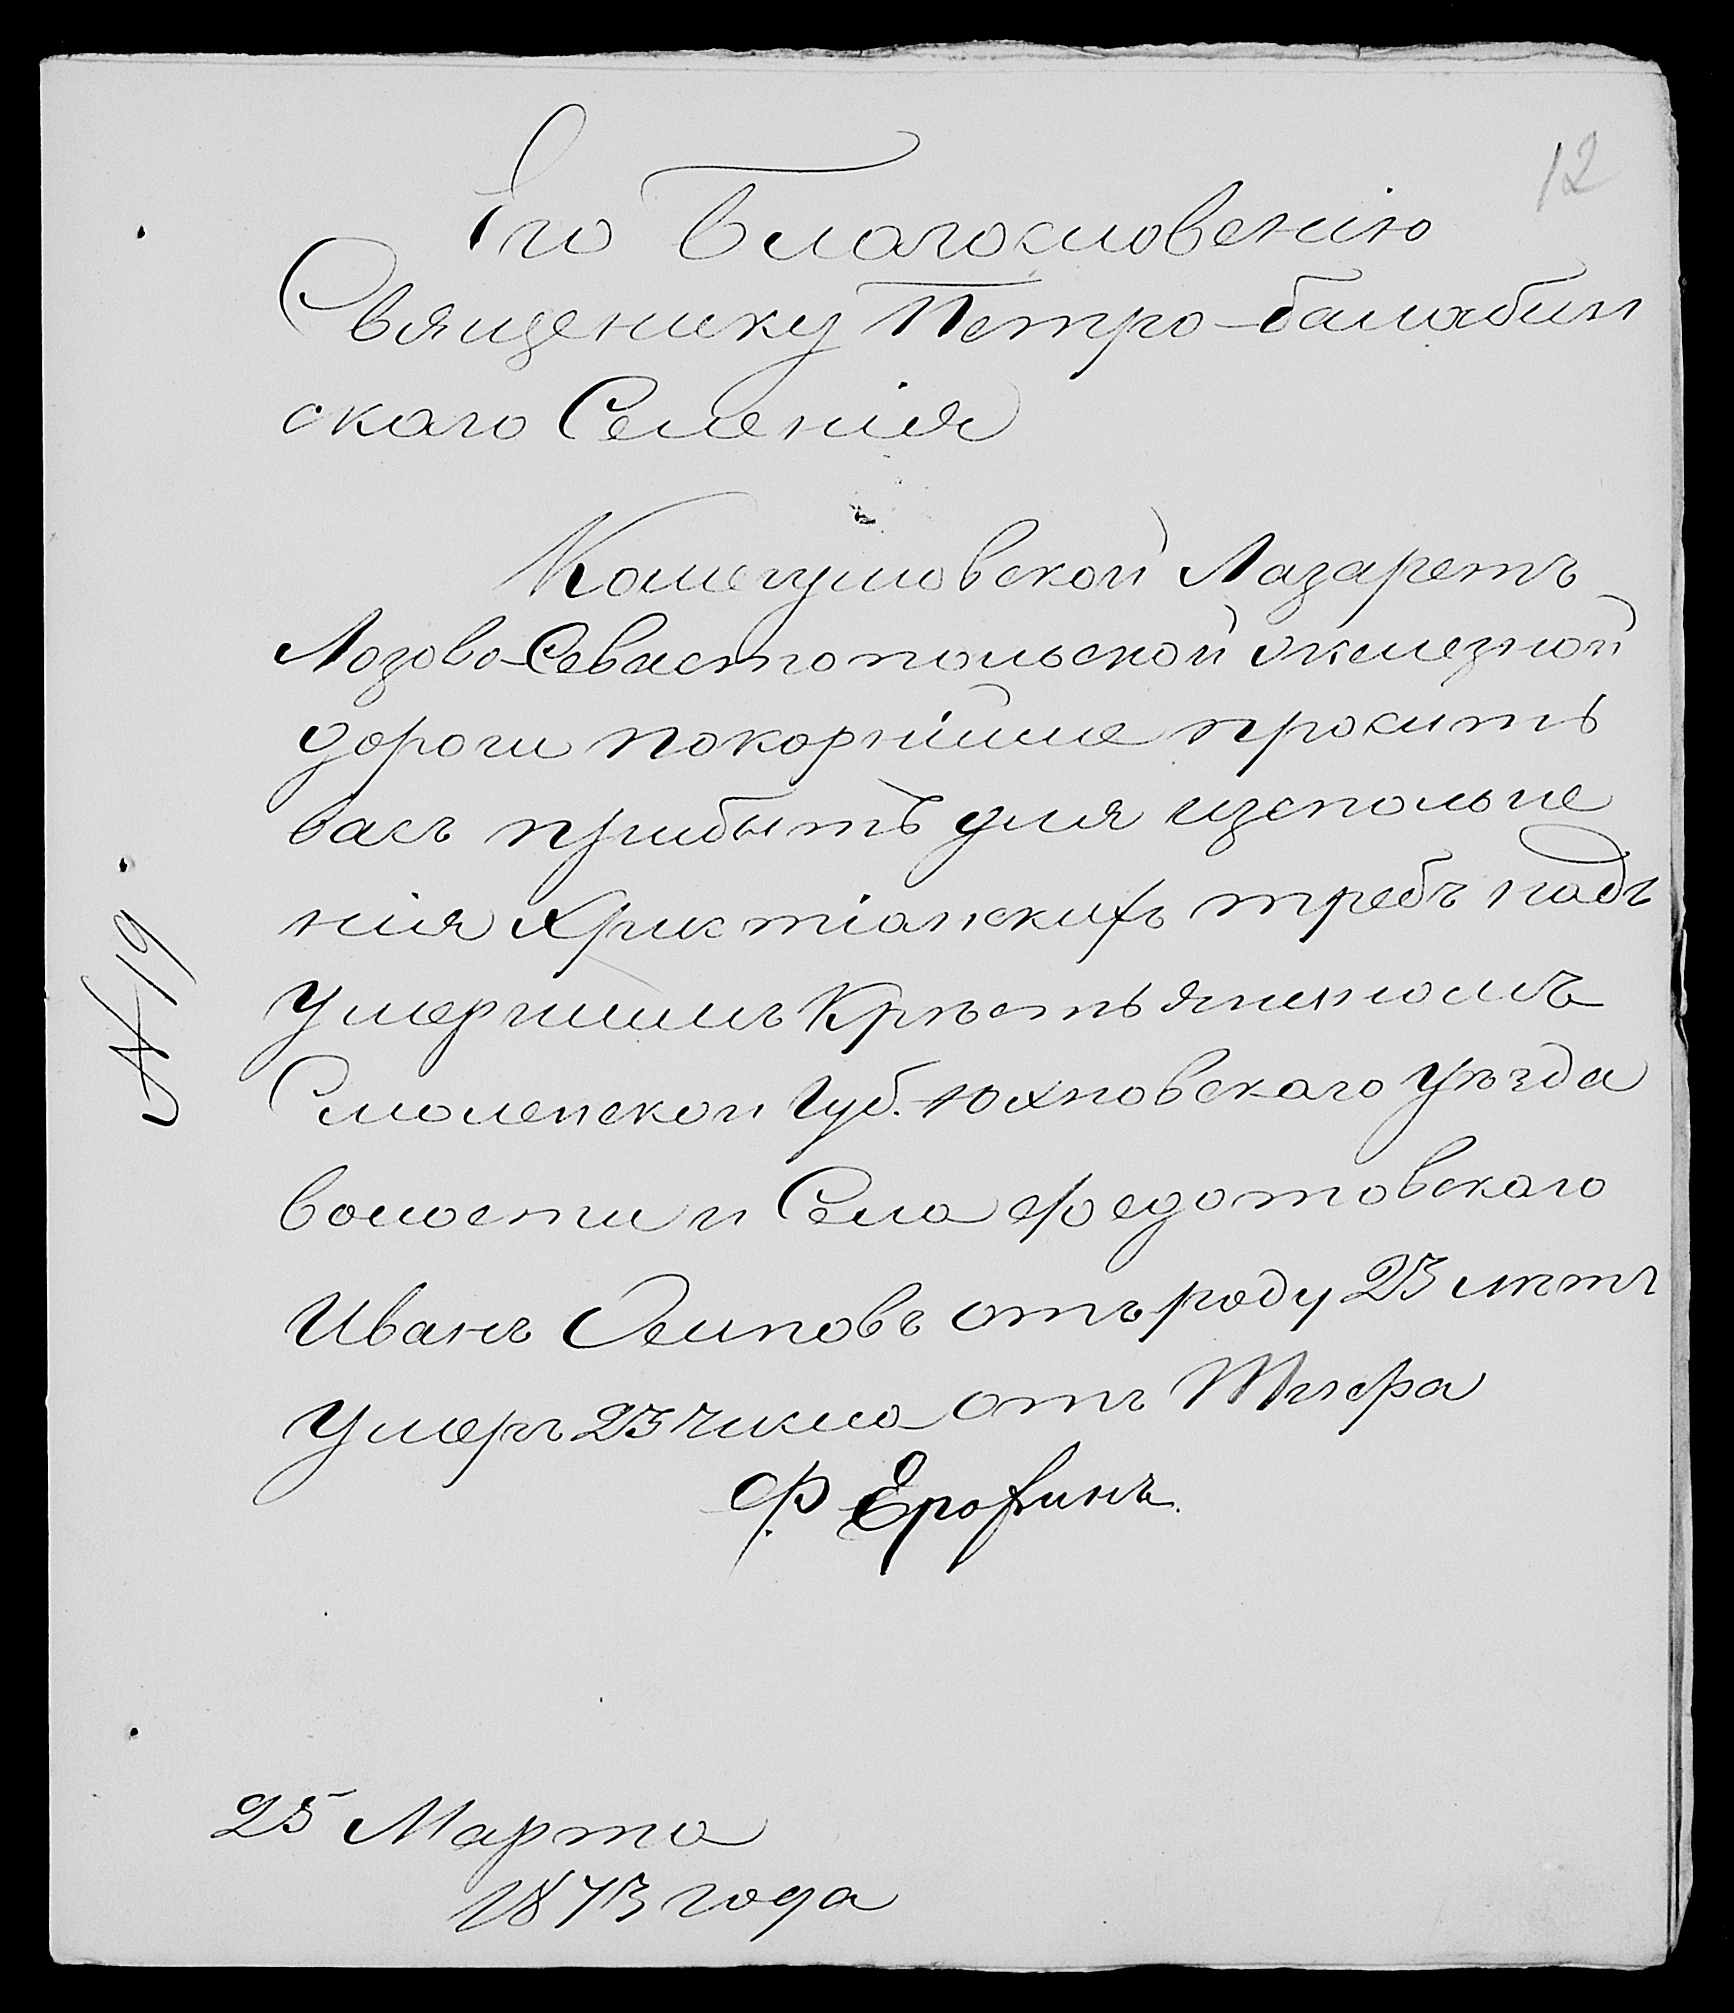 12
Его Благословенію
Священику Петро-балабин
скаго Селенія
Кошегумовской Лазаретъ
Лозово-Севастопольской железной
дороги покорнійше проситъ
васъ прибыть для изспольне
нія Христіанскихъ требъ надъ
умершимъ Крѣстьяниномъ
Смоленской Губ. Юхновскаго уѣзда
волости и Села Федотовскаго
Иванъ Осиповъ отъ роду 23 лѣтъ
умеръ 23 числа отъ Тифа
Ф Ерофинъ.
№ 19
25 Марта
1873 года